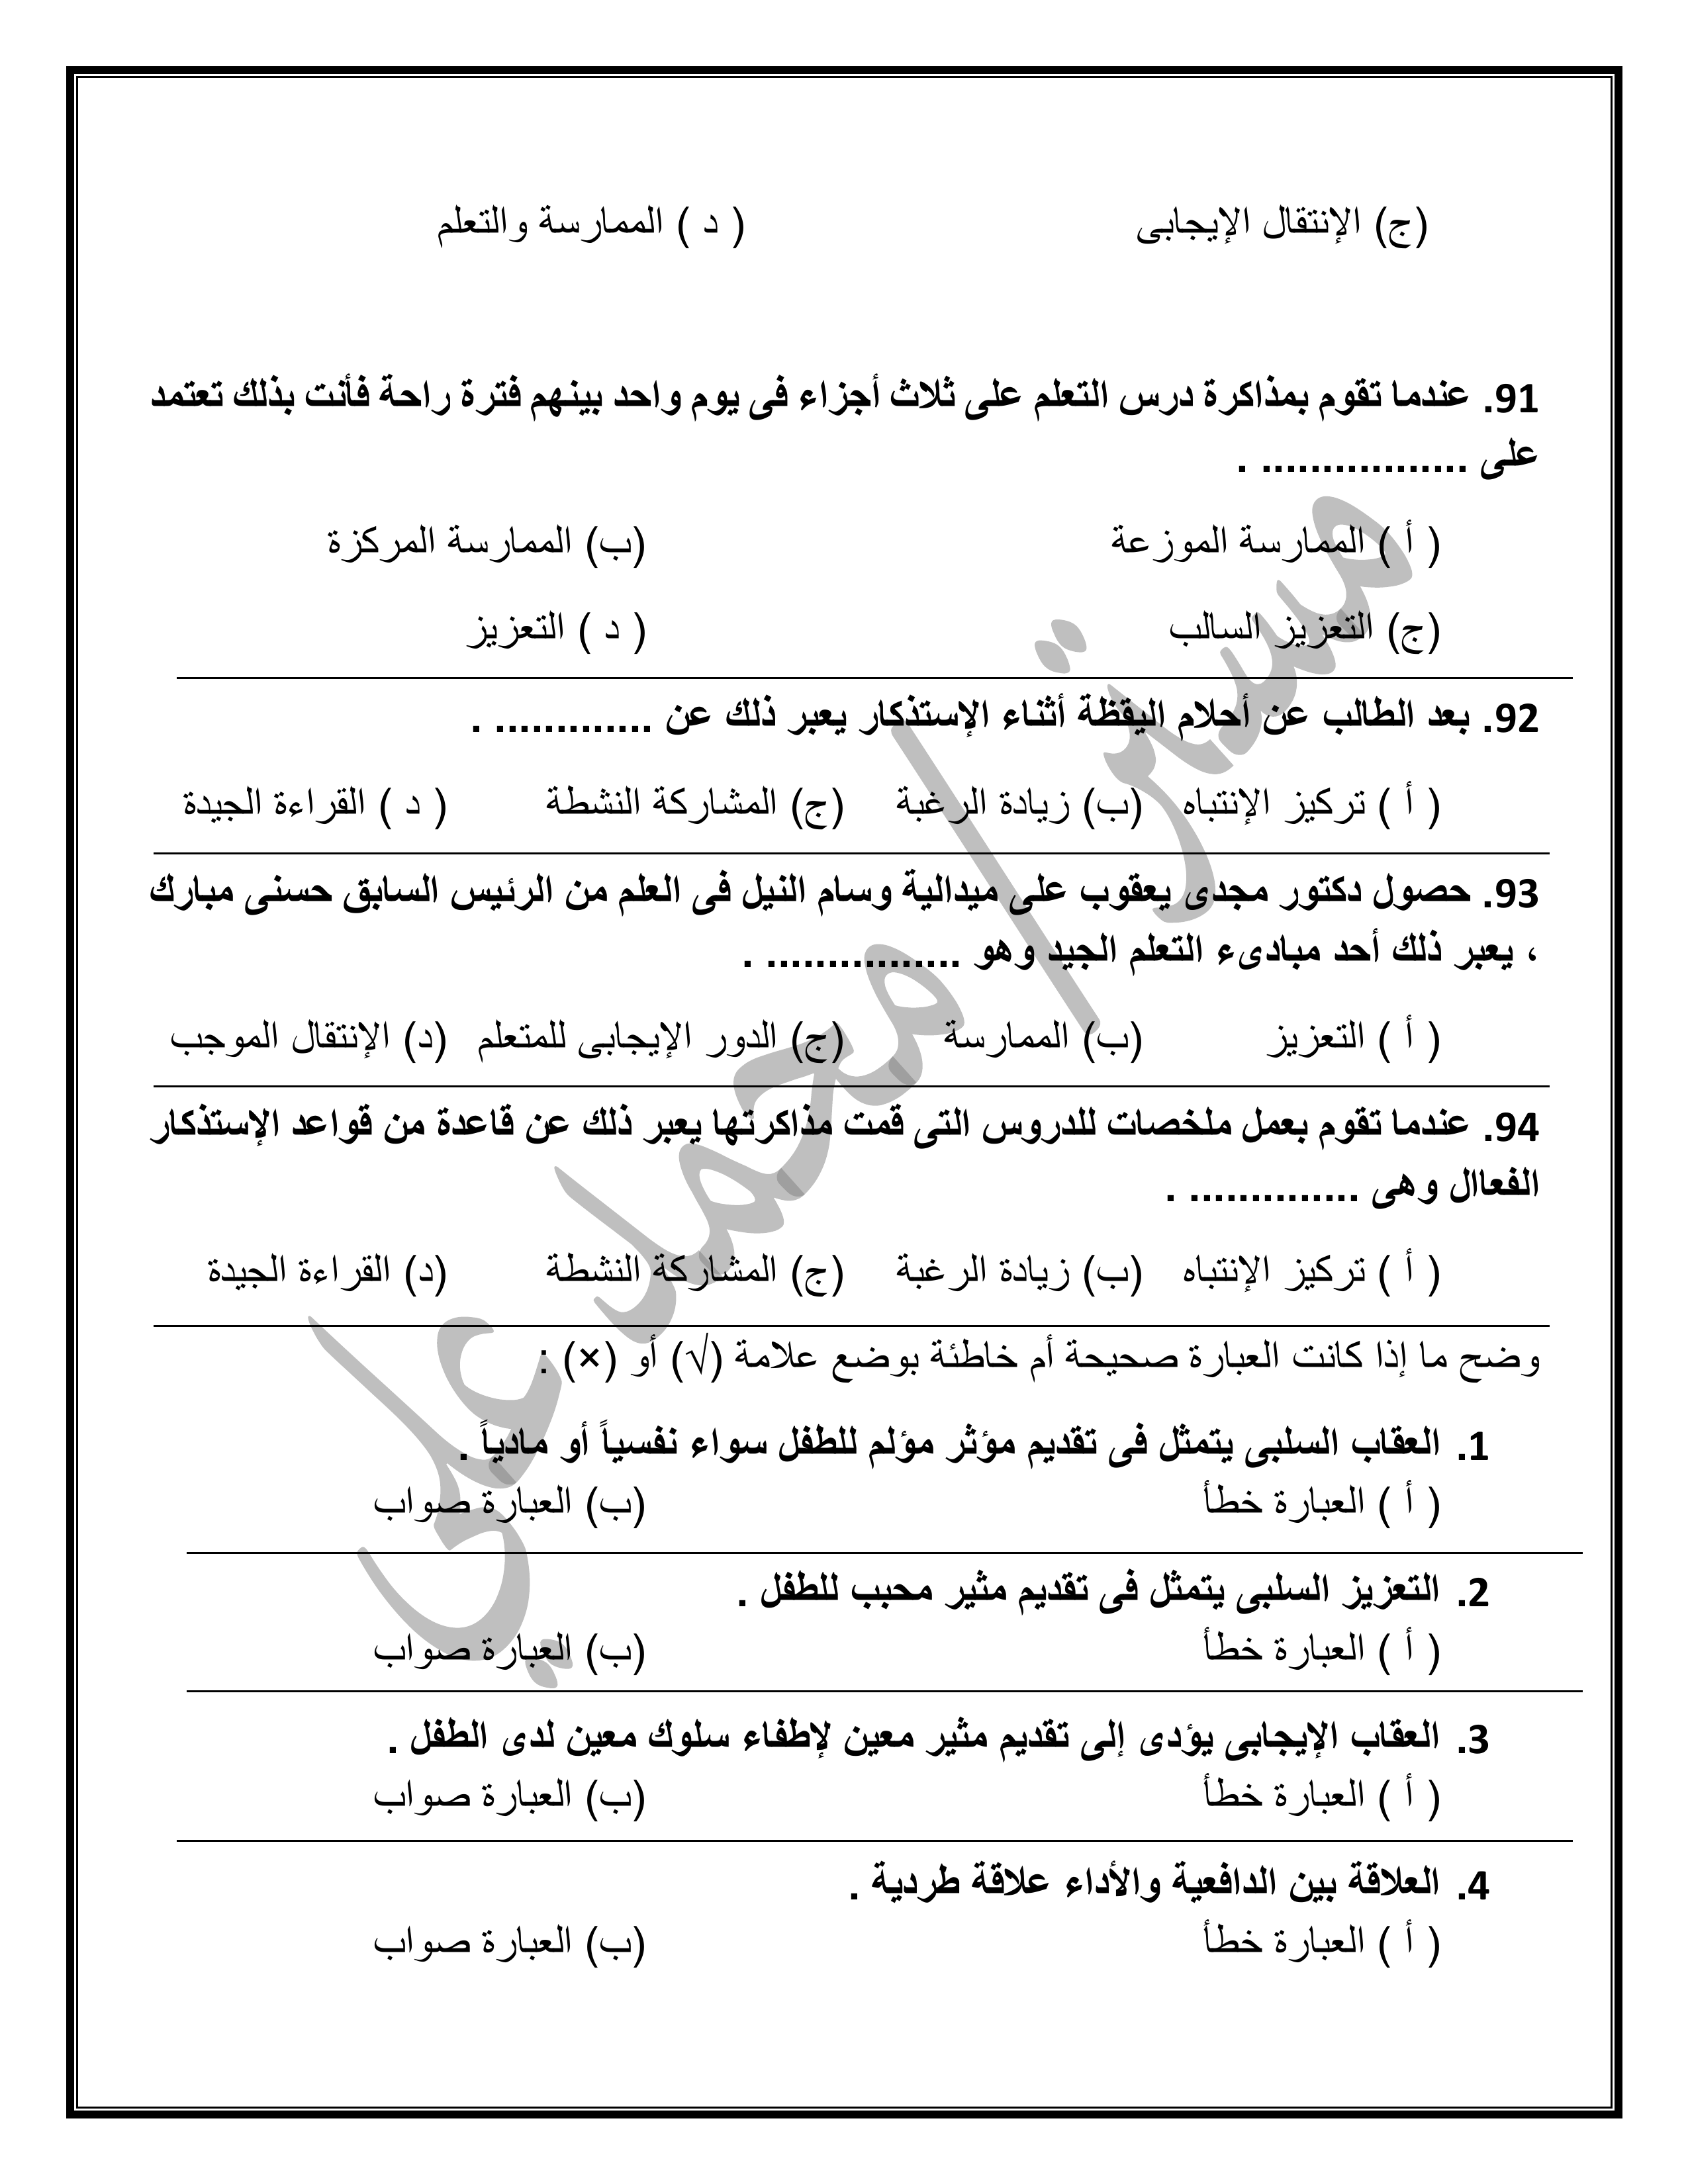 (ج) الإنتقال الإيجابى ( د ) الممارسة والتعلم
91. عندما تقوم بمذاكرة درس التعلم على ثلاث أجزاء فى يوم واحد بينهم فترة راحة فأنت بذلك تعتمد
على ................. .
( أ ) الممارسة الموزعة (ب) الممارسة المركزة
(ج) التعزيز السالب ( د ) التعزيز
92. بعد الطالب عن أحلام اليقظة أثناء الإستذكار يعبر ذلك عن ............. .
( أ ) تركيز الإنتباه (ب) زيادة الرغبة (ج) المشاركة النشطة ( د ) القراءة الجيدة
93. حصول دكتور مجدى يعقوب على ميدالية وسام النيل فى العلم من الرئيس السابق حسنى مبارك
، يعبر ذلك أحد مبادىء التعلم الجيد وهو ................ .
( أ ) التعزيز (ب) الممارسة (ج) الدور الإيجابى للمتعلم (د) الإنتقال الموجب
94. عندما تقوم بعمل ملخصات للدروس التى قمت مذاكرتها يعبر ذلك عن قاعدة من قواعد الإستذكار
الفعاال وهى .............. .
( أ ) تركيز الإنتباه (ب) زيادة الرغبة (ج) المشاركة النشطة (د) القراءة الجيدة
وضح ما إذا كانت العبارة صحيحة أم خاطئة بوضع علامة (√) أو (×) :
1. العقاب السلبى يتمثل فى تقديم مؤثر مؤلم للطفل سواء نفسياً أو مادياً .
( أ ) العبارة خطأ (ب) العبارة صواب
2. التعزيز السلبى يتمثل فى تقديم مثير محبب للطفل .
( أ ) العبارة خطأ (ب) العبارة صواب
3. العقاب الإيجابى يؤدى إلى تقديم مثير معين لإطفاء سلوك معين لدى الطفل .
( أ ) العبارة خطأ (ب) العبارة صواب
4. العلاقة بين الدافعية والأداء علاقة طردية .
( أ ) العبارة خطأ (ب) العبارة صواب
مستر/محمد علي